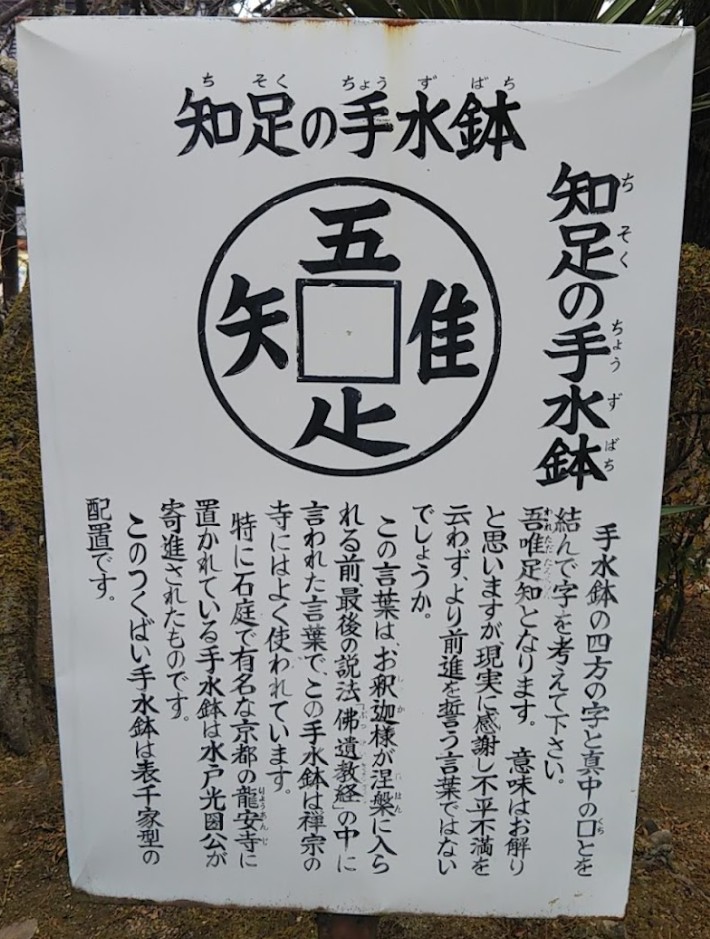 知足の手水鉢
ち そく ちょう ず ばち
五
隹
矢
知足の手水鉢
ち そく ちょう ず ばち
手水鉢の四方の字と真中の口とを
結んで字を考えて下さい。
吾唯足知となります。　意味はお解り
と思いますが、現実に感謝し不平不満を
云わず、より前進を誓う言葉ではない
でしょうか。
この言葉は、お釈迦様が涅槃に入ら
れる前最後の説法「佛遺教経」の中に
言われた言葉で、この手水鉢は禅宗の
寺にはよく使われています。
特に石庭で有名な京都の龍安寺に
置かれている手水鉢は水戸光圀公が
寄進されたものです。
このつくばい手水鉢は表千家型の
配置です。